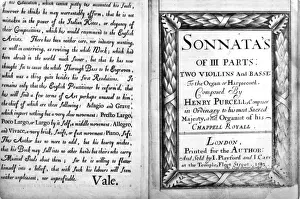 his Education, which cannot justly be accounted his Fault,
however he thinks he may warrantably affirm, that he is not
mistaken in the power of the Italian Notes, or elegancy of
their Compositions, which he would recommend to the English
Artists. There has been neither care, nor industry wanting,
as well in contriving, as revising the whole Work; which had
been abroad in the world much sooner, but that he has now
thought fit to cause the whole Thorough Bass to be Engraven,
which was a thing quite besides his first Resolutions. It
remains only that the English Practitioner be enform'd, that
he will find a few terms of Art perhaps unusual to him,
the chief of which are these following: Adagio and Grave,
which import nothing but a very slow movement: Presto Largo,
Poco Largo, or Largo by it Self, a middle movement: Allegro,
and Vivace, a very brisk, swift, or fast movement: Piano, soft.
The Author has no more to add, but his hearty wishes,
that his Book may fall into no other hands but theirs who carry
Musical Souls about them; for he is willing to flatter
himself into a belief, that with Such his labours will seem
neither unpleasant, nor unprofitable.
Vale.
SONNATA'S
OF III PARTS:
TWO VIOLLINS And BASSE:
To the Organ or Harpsecord.
Composed By
HENRY PURCELL, Composer
in Ordinary to his most Sacred
Majesty, and Organist of his
CHAPPELL ROYALL.
LONDON,
Printed for the AUTHOR:
And Sold by I. Playford and I. Carr
at the Temple, Fleet Street.